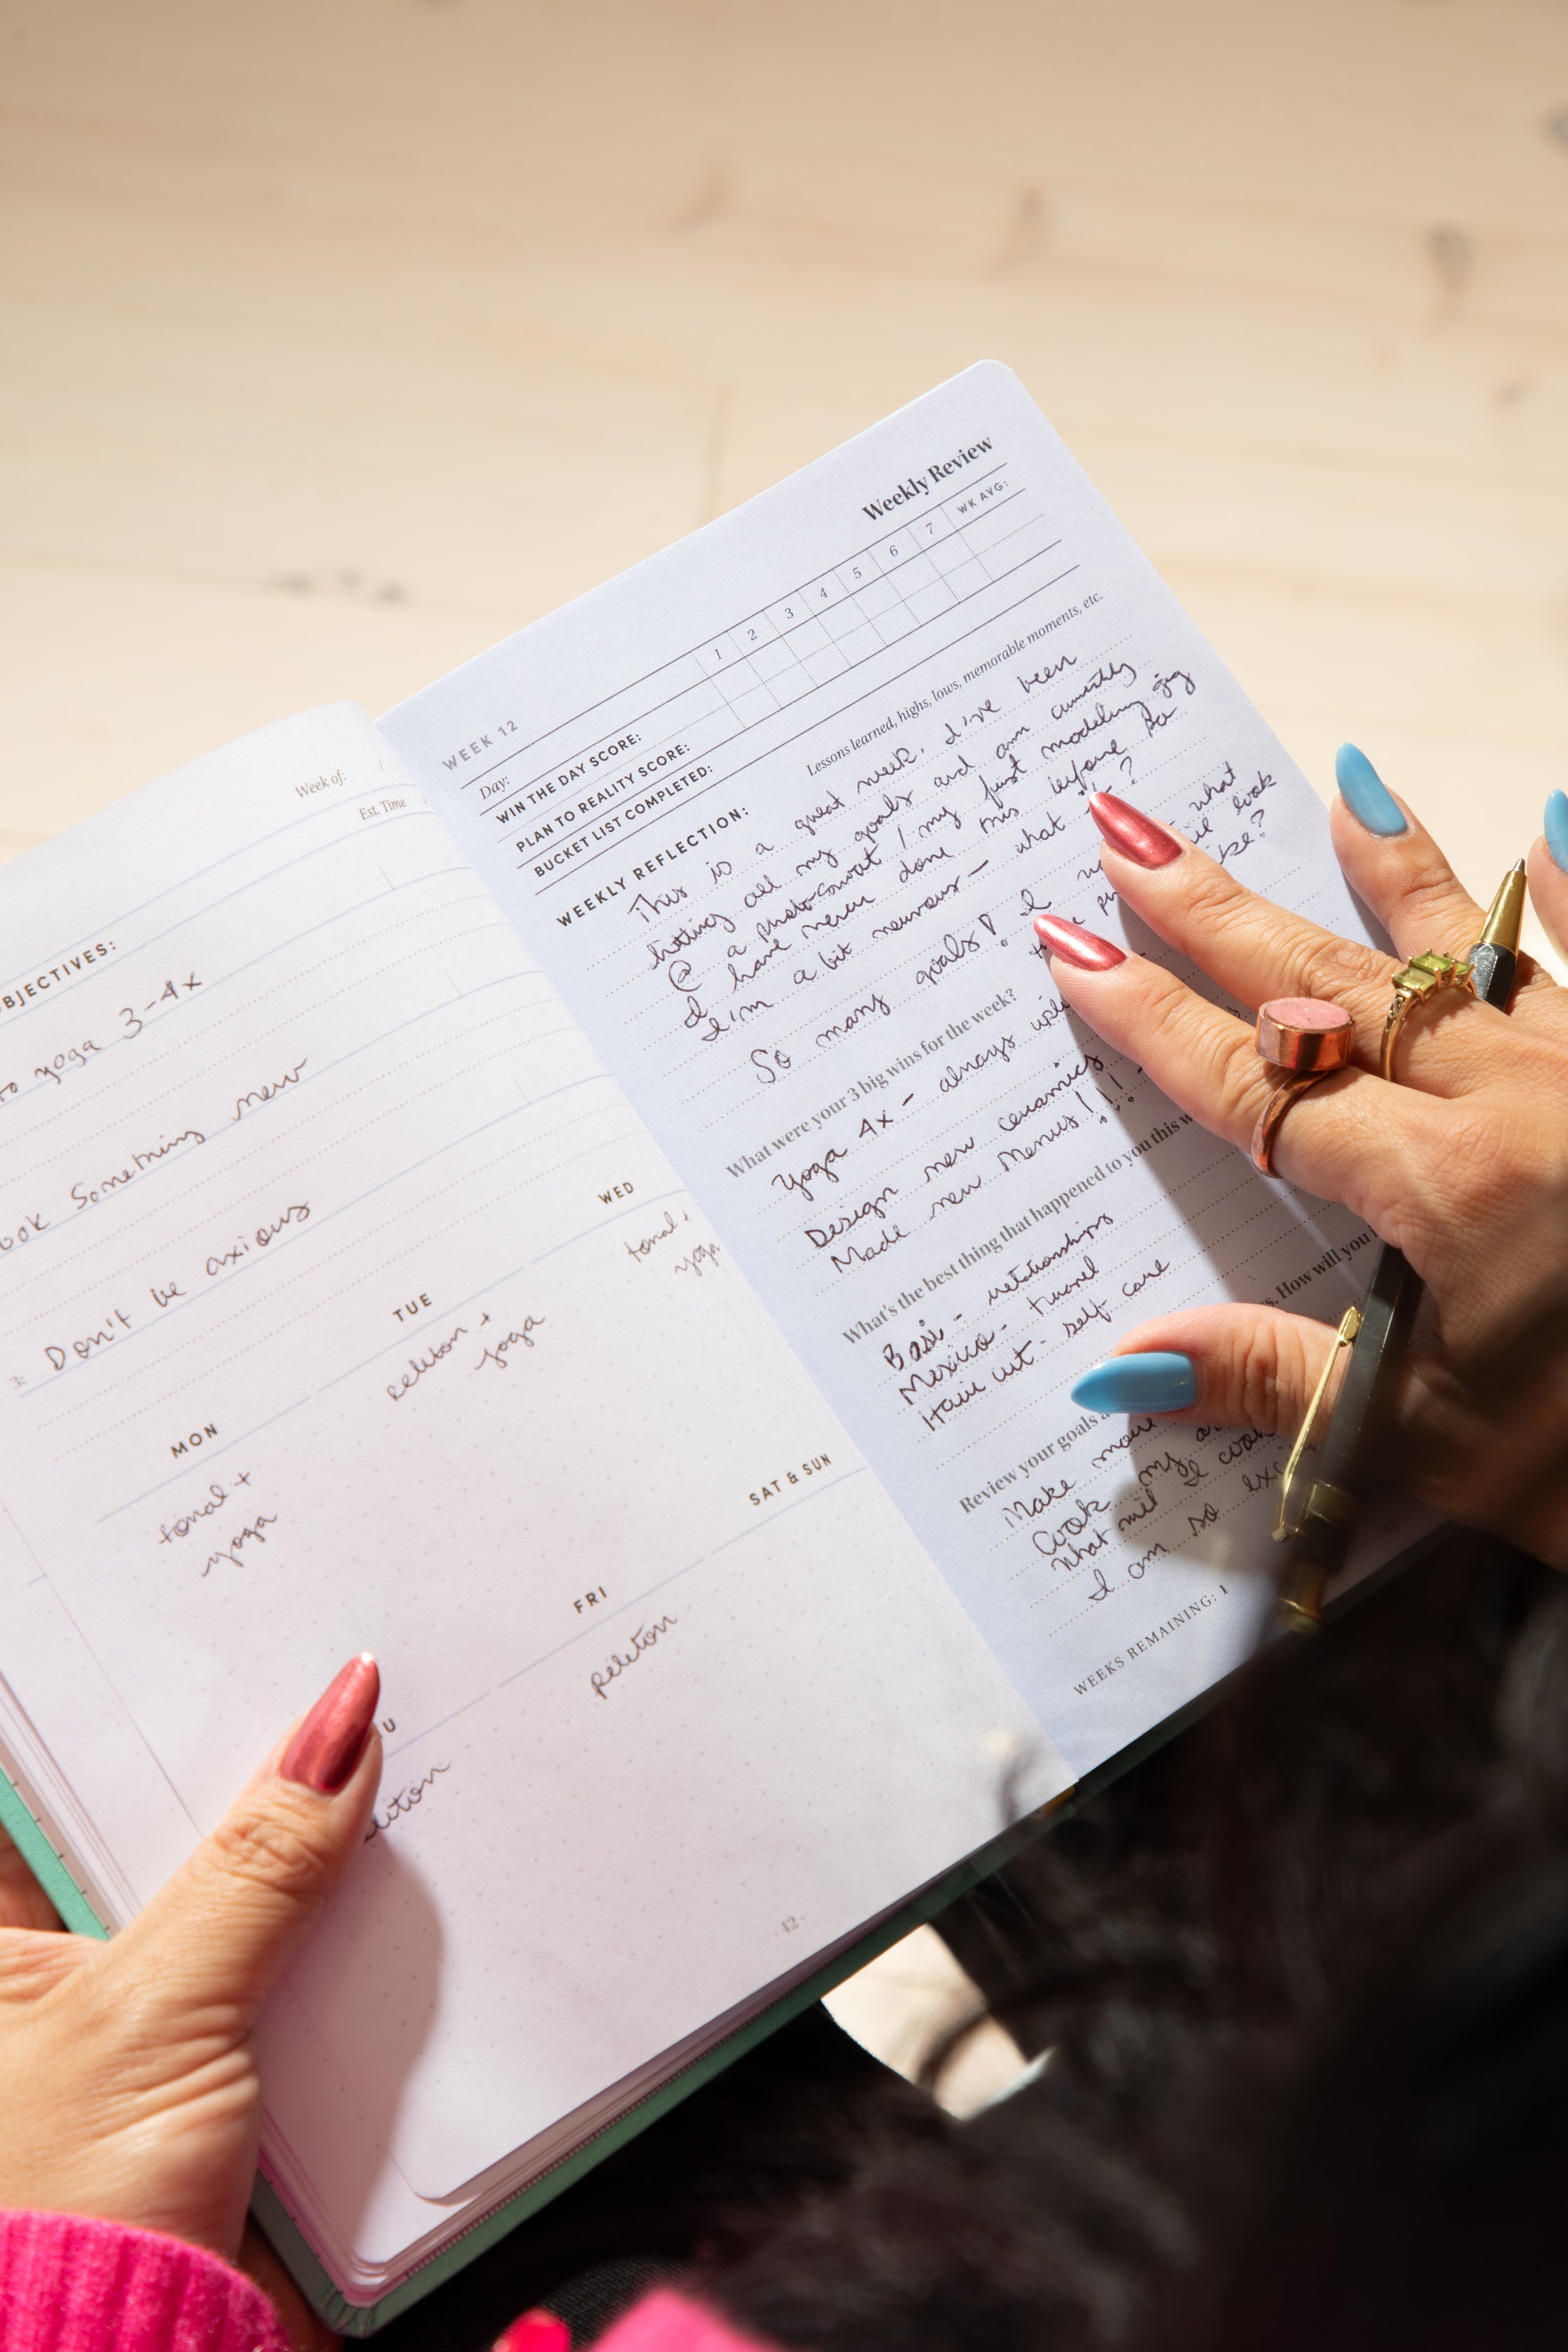 Week of:
Est. Time
BJECTIVES:
to yoga 3-4x
ook Something new
3: Don't be axious
MON
tonal +
yoga
TUE
peleton +
yoga
WED
tonal,
yoga
U
liton
FRI
peleton
SAT & SUN
42
Weekly Review
WEEK 12
Day: 1 2 3 4 5 6 7 WK AVG:
WIN THE DAY SCORE:
PLAN TO REALITY SCORE:
BUCKET LIST COMPLETED:
WEEKLY REFLECTION: Lessons learned, highs, lows, memorable moments, etc.
This is a great week. I've been
hitting all my goals and am currently
@ a photoshoot / my first modeling gig
I have never done this before so
I'm a bit nervous - what ?
So many goals! I what
the look
ike?
What were your 3 big wins for the week?
Yoga 4x - always
Design new ceramics
Made new Menus!!!
What's the best thing that happened to you this w
Basi - relationships
Mexico - travel
Hair cut - self care
Review your goals s. How will you
Make more
Cook my
What will I cook
I am so exc
WEEKS REMAINING: 1